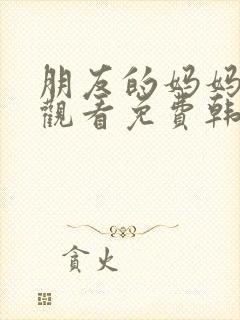 朋友的妈妈
觀看免費韩
貪火